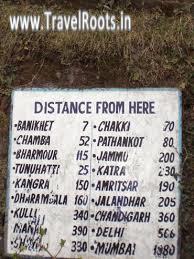 www.TravelRoots.In
DISTANCE FROM HERE
•BANIKHET 7 •CHAKKI 70
•CHAMBA 52 •PATHANKOT 80
•BHARMOUR 115 •JAMMU 200
•TUNUHATTI 25 •KATRA 230
•KANGRA 150 •AMRITSAR 190
•DHARAMBALA 160 •JALANDHAR 205
•KULLI 340 •CHANDIGARH 360
390 •DELHI 566
330 •MUMBAI 1980